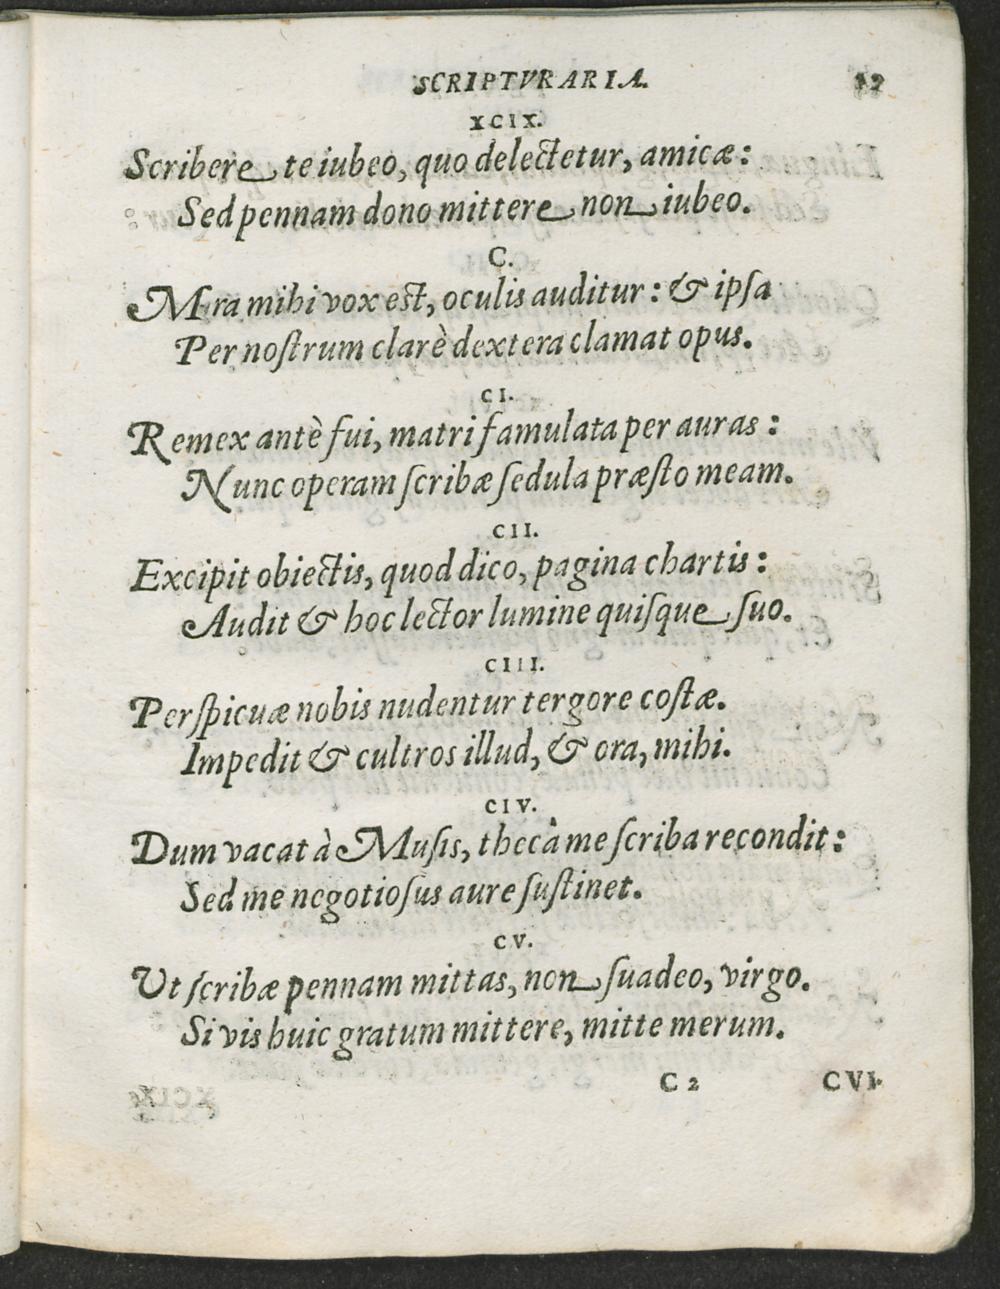 SCRIPTVRARIA. 12
XCIX.
Scribere te iubeo, quo delectetur, amicæ:
Sed pennam dono mittere non iubeo.
C.
Mira mihi vox est, oculis auditur: & ipſa
Per noſtrum clarè dextera clamat opus.
CI.
Remex antè fui, matri famulata per auras:
Nunc operam ſcribæ ſedula præſto meam.
CII.
Excipit obiectis, quod dico, pagina chartis:
Audit & hoc lector lumine quiſque ſuo.
CIII.
Perſpicuæ nobis nudentur tergore coſtæ.
Impedit & cultros illud, & ora, mihi.
CIV.
Dum vacat à Muſis, thecâ me ſcriba recondit:
Sed me negotioſus aure ſuſtinet.
CV.
Ut ſcribæ pennam mittas, non ſuadeo, virgo.
Si vis huic gratum mittere, mitte merum.
C 2 CVI.